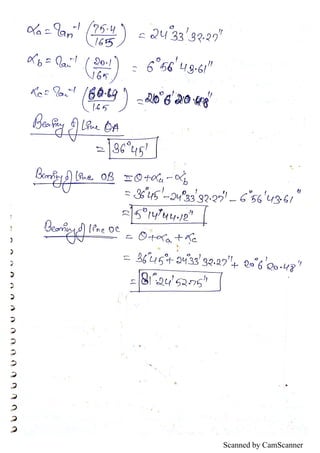 αa = Tan⁻¹ (75.4/165) = 24°33'32.27"
αb = Tan⁻¹ (20.1/165) = 6°56'43.61"
αc = Tan⁻¹ (60.4/165) = 20°6'20.48"
Bearing of line OA
= 36°45'
Bearing of line OB = θ+αa-αb
= 36°45'-24°33'32.27"-6°56'43.61"
= 5°14'44.12"
Bearing of line OC = θ+αa+αc
= 36°45°+24°33'32.27"+20°6'20.48"
= 81°24'52.75"
Scanned by CamScanner